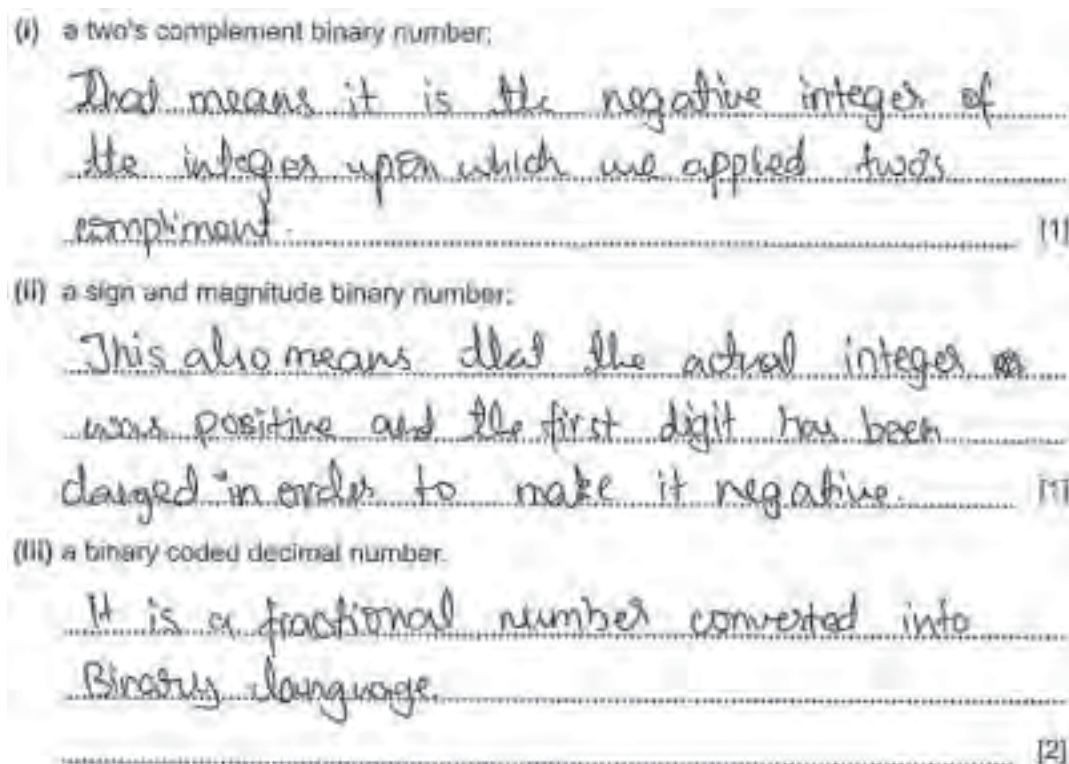 (i) a two's complement binary number:
That means it is the negative integer of
the integer upon which we applied two's
compliment. [1]
(ii) a sign and magnitude binary number:
This also means that the actual integer
was positive and the first digit has been
changed in order to make it negative. [1]
(iii) a binary coded decimal number.
It is a fractional number converted into
Binary language.
[2]